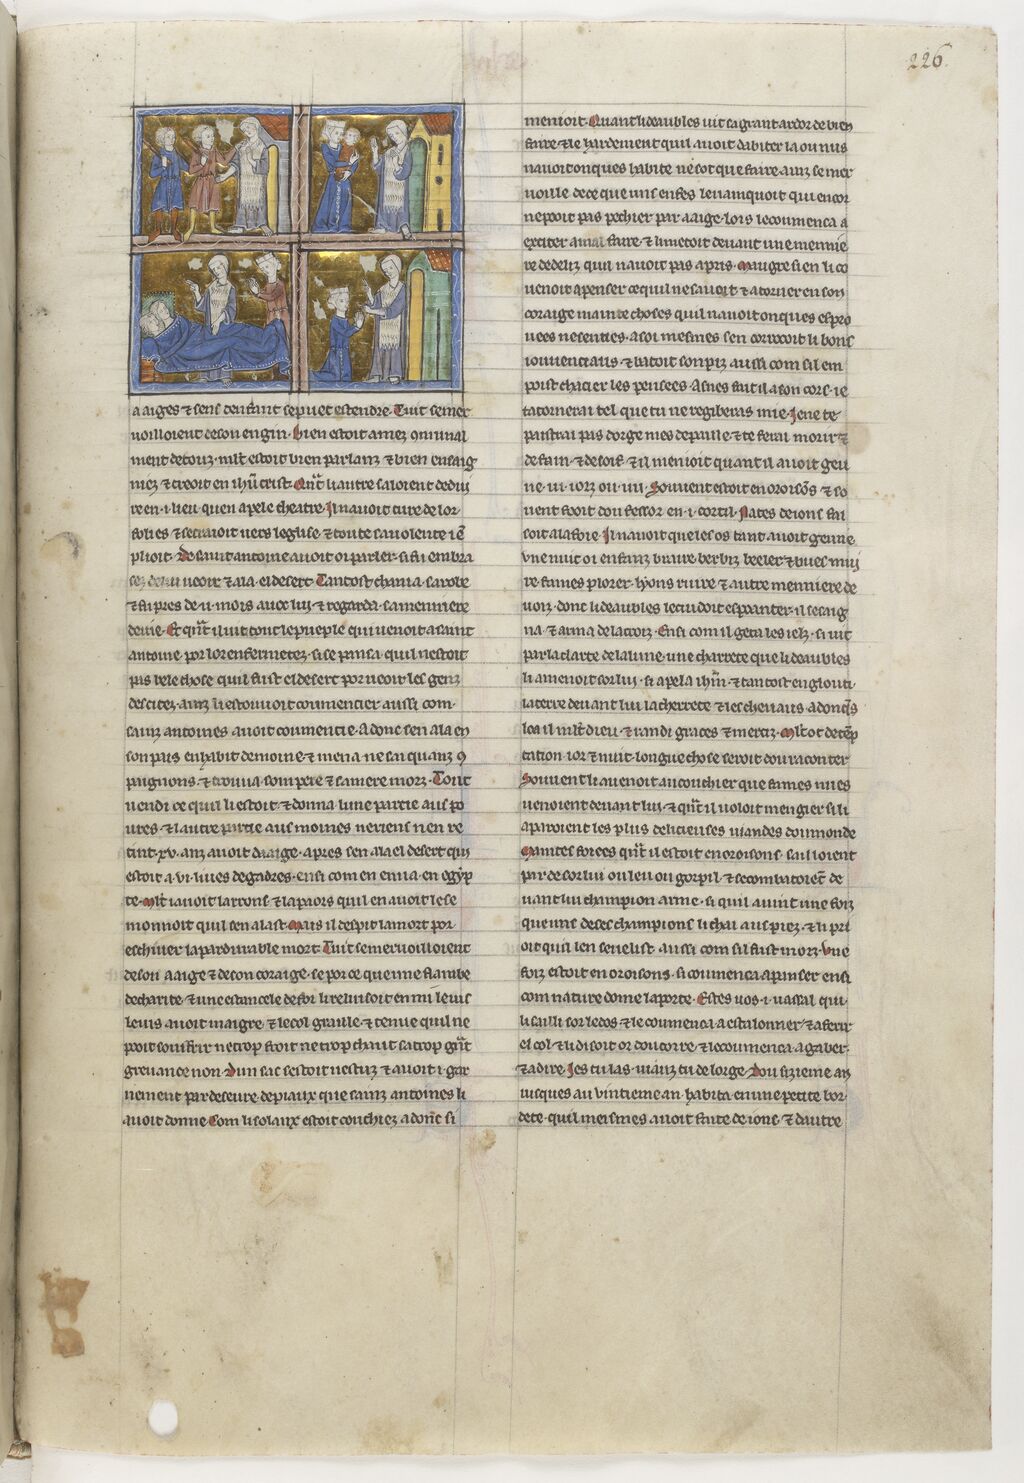 226.
a aiges & sens denfant se puet estendre. Tuit se mer
uoilloient de son engin. bien estoit amez 9munal
ment de touz. mlt estoit bien parlanz & bien ensaig
niez & creoit en ihu crist. Qnt li autre saloient dedui
re en .i. lieu quen apele theatre. Il nauoit cure de lor
folies & se traioit uers leglise & toute sa uolente iem
plioit. De saint antoine auoit oi parler. si fu embra
sez de lui ueoir & ala el desert. Tantost chania sa robe
& fu pres de .ii. mois auec lui & regarda sa menniere
de uie. Et qnt il uit tout le pueple qui uenoit a saint
antoine por lor enfermetez. si se pansa quil nestoit
pas bele chose quil fust el desert por ueoir les genz
des citez. ainz li estouuoit conmencier aussi com
sainz antoines auoit conmencie. Adonc sen ala en
son pais en habit de moine. & mena ne sai quanz 9
paignons. & trouua son pere & sa mere morz. Tout
uendi ce quil li estoit & donna lune partie aus po
ures & lautre partie aus moines ne riens nen re
tint. xv. anz auoit daaige. apres sen ala el desert qui
estoit a .vi. liues de gadres. ensi com en en ua en egyp
te. Mlt i auoit larrons & la paors quil en auoit le se
monnoit quil sen alast. Mais il despit la mort por
eschiuer la pardurable mort. Tuit se meruoilloient
de son aaige & de son coraige. se por ce que une flambe
de charite & une estancele de foi li reluisoit en mi le uis
le uis auoit maigre & le col graille & tenue quil ne
pooit souffrir ne trop froit ne trop chaut sa trop gnt
greuance non. Dun sac sestoit uestuz & auoit .i. gar
nement par deseure de piaux que sainz antoines li
auoit donne. Com li solaux estoit couchiez adonc si
menioit. Quant li deaubles uit sa grant ardor de bien
faire & le hardement quil auoit dabiter la ou nus
nauoit onques habite ne sot que faire ainz se mer
uoille de ce que uns enfes le uainquoit qui encor
ne pooit pas pechier par aaige. lors le coumenca a
exciter a mal faire & li metoit deuant une mennie
re de deliz quil nauoit pas apris. Maugre sien li co
uenoit a penser ce quil ne sauoit & atorner en son
coraige mainte choses quil nauoit onques espro
uees ne senties. a soi mesmes sen corrocoit li bons
iouuenciaus & batoit son piz aussi com sil em
poist chacier les pensees. Asnes fait il a son cors. ie
tatornerai tel que tu ne regiberas mie. Je ne te
paistrai pas dorge mes de paille & te ferai morir &
de fain & de soif. & il menioit quant il auoit geu
ne .iii. iorz ou .iiii. Souuent estoit en oroisons & so
uent fooit dou fessor en .i. cortil. Nates de ions fai
soit a la foie. Il nauoit que les os tant auoit geune
vne nuit oi enfanz braire berbiz beeler & bues mui
re fames plorer lyons ruire & autre menniere de
uoiz. donc li deaubles le cuidoit espoanter. il se saig
na & arma de la croiz. Ensi com il geta les ielz. si uit
par la clarte de la lune. une charrete que li deaubles
li amenoit sor lui. si apela ihm. & tantost englouti
la terre deuant lui la cherrete & les cheuaus. adoncs
loa il mlt dieu & randi graces & merciz. Mlt ot de temp
tation ior & nuit. longue chose seroit dou raconter
Souuent li auenoit au couchier que fames nues
uenoient deuant lui & qnt il uoloit mengier si li
aparoient les plus delicieuses uiandes dou monde
Maintes foiees qnt il estoit en oroisons. sailloient
par desor lui ou leu ou gorpil & se combatoient de
uant lui champion arme. si quil auint une foiz
que uns de ses champions li chai aus piez. & li pri
oit quil len seuelist. aussi com sil fust morz. Vne
foiz estoit en oroisons. si coumenca a penser ensi
com nature dome la porte. Estes uos .i. uassal qui
li sailli sor le dos & le coumenca a estalonner & a ferir
el col & li disoit or dou corre & le coumenca a gaber.
& a dire. Jes tu las. uiauz tu de lorge. Dou sizieme an
iusques au uintieme an. habita en une petite bor
dete. quil meismes auoit faite de ions. & dautre